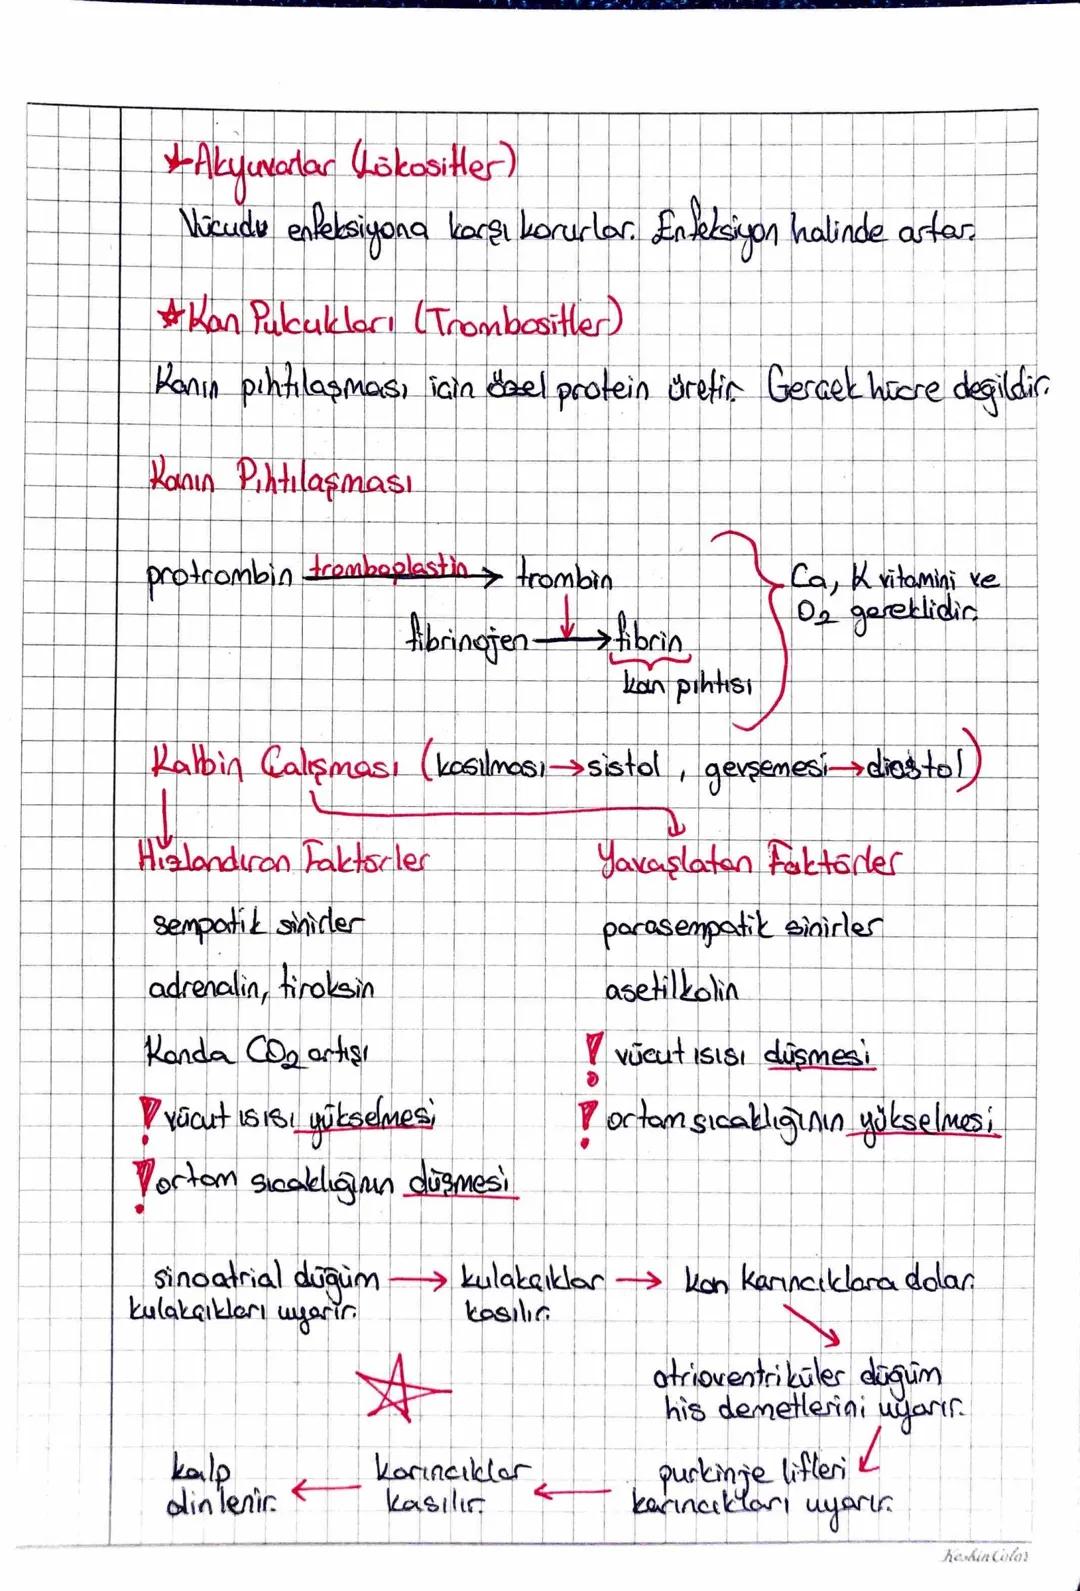 Akyuvarlar (Lökositler)
Vücudu enfeksiyona karşı korurlar. Enfeksiyon halinde artar.
Kan Pulcukları (Trombositler)
Kanın pıhtılaşması için özel protein üretir. Gerçek hücre değildir.
Kanın Pıhtılaşması
protrombin tromboplastin → trombin
fibrinojen → fibrin
kan pıhtısı
Ca, K vitamini ve
O2 gereklidir.
Kalbin Çalışması (kasılması → sistol, gevşemesi → diastol)
Hızlandıran Faktörler
sempatik sinirler
adrenalin, tiroksin
Kanda CO2 artışı
! vücut ısısı yükselmesi
! ortam sıcaklığının düşmesi
Yavaşlatan Faktörler
parasempatik sinirler
asetilkolin
! vücut ısısı düşmesi
! ortam sıcaklığının yükselmesi
sinoatrial düğüm → kulakçıklar → kan karıncıklara dolar.
kulakçıkları uyarır. kasılır.
atrioventriküler düğüm
his demetlerini uyarır.
purkinje lifleri
karıncıkları uyarır.
karıncıklar
kasılır.
kalp
dinlenir.
Keskin Color